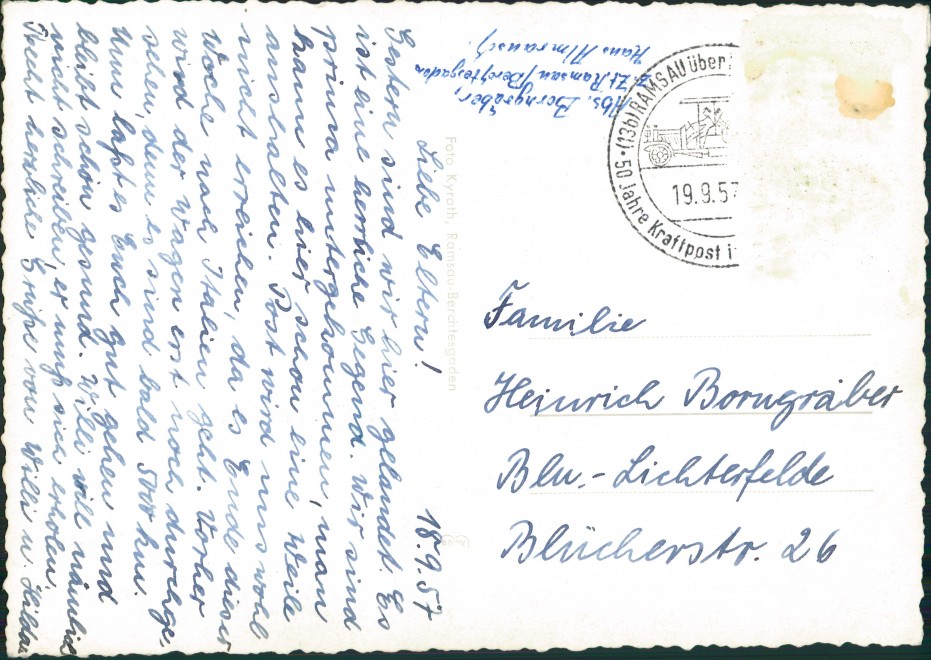 18.9.57
Liebe Eltern!
Gestern sind wir hier gelandet. Es
ist eine herrliche Gegend. Wir sind
prima untergekommen, man
kann es hier schon eine Weile
aushalten. Post wird uns wohl
nicht erreichen, da es Ende dieser
Woche nach Italien geht. Vorher
wird der Wagen erst noch durchge-
sehen, denn es sind bald 500 km.
Nun laßt es Euch gut gehen und
bleibt schön gesund. Willi will nämlich
nicht schreiben, er muß sich erholen.
Recht herzliche Grüße von Willi u. Hilde
Abs. Borngräber,
z. Zt. Ramsau/Berchtesgaden
Haus Almrausch.
Foto Kyrath, Ramsau-Berchtesgaden
(13b) RAMSAU über
19.9.57
50 Jahre Kraftpost i
Familie
Heinrich Borngräber
Bln.-Lichterfelde
Blücherstr. 26